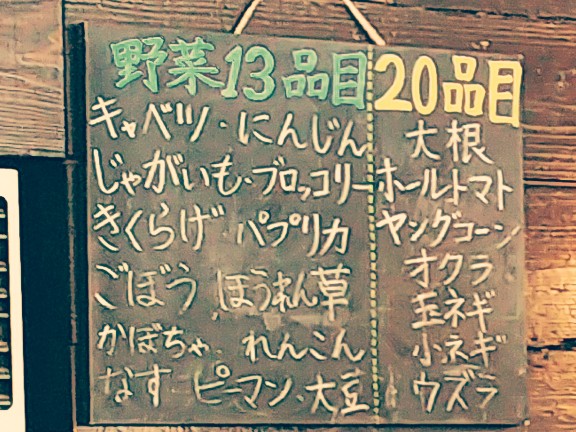 野菜13品目
キャベツ・にんじん
じゃがいも・ブロッコリー
きくらげ パプリカ
ごぼう ほうれん草
かぼちゃ れんこん
なす ピーマン、大豆
20品目
大根
ホールトマト
ヤングコーン
オクラ
玉ネギ
小ネギ
ウズラ